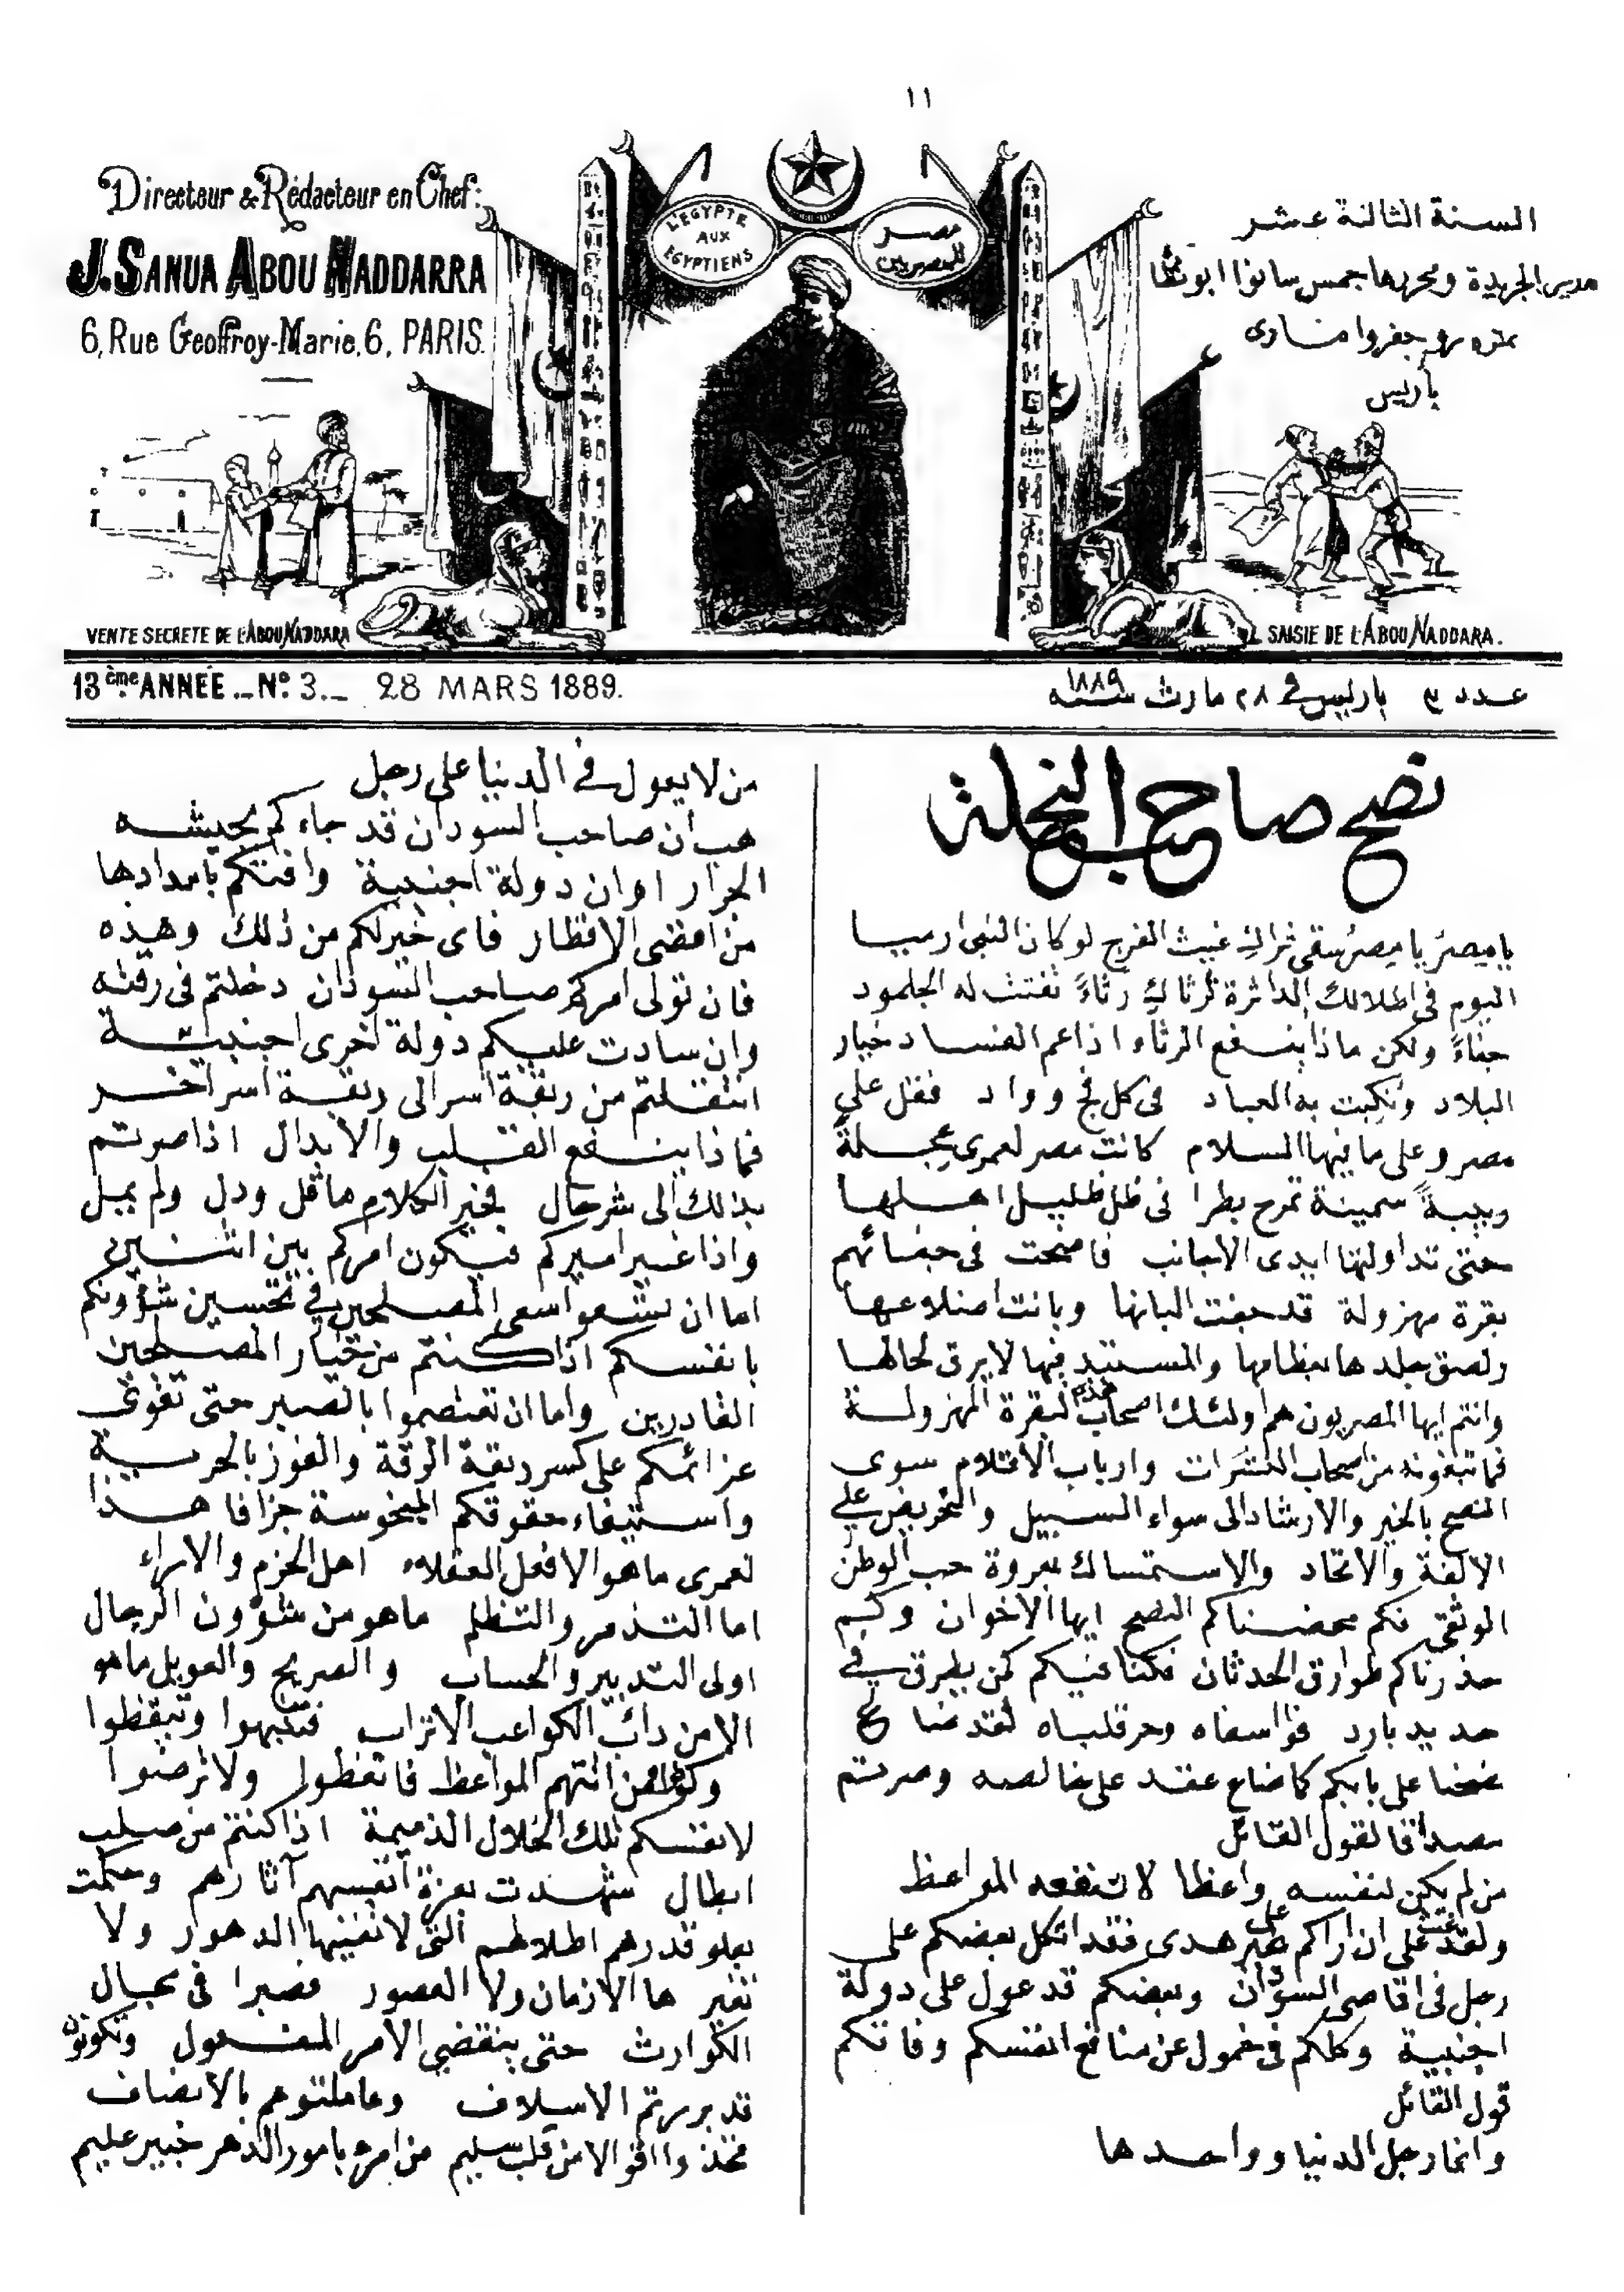 ١١
Directeur & Rédacteur en Chef:
J. SANUA ABOU NADDARRA
6, Rue Geoffroy-Marie, 6, PARIS.
L'EGYPTE
AUX
EGYPTIENS
مصر
للمصريين
السنة الثالثة عشر
مدير الجريدة ومحررها جمس سانوا ابو نظارة
بتره رو جفروا مارى
باريس
VENTE SECRETE DE L'ABOU NADDARA
SAISIE DE L'ABOU NADDARA.
13ème ANNÉE _ No. 3. _ 28 MARS 1889.
عدد ٣ باريس فى ٢٨ مارث سنة ١٨٨٩
نصح صاحب النحلة
يا مصر يا مصر سقى ثراك غيث الفرج لو كان النبى ارميا
اليوم فى اطلالك الداثرة لرثاك رثاءً تفتت له الجلمود
حفاءً ولكن ماذا ينفع الرثاء اذا عم الفساد خيار
البلاد ونكبت به العباد فى كل فج وواد فقل على
مصر وعلى ما فيها السلام كانت مصر لعمرى عجلة
ربيبة سمينة تمرح بطرا فى ظل ظليل اهلها
حتى تداولتها ايدى الاجانب فاضحت فى حضائهم
بقرة مهزولة قد جفت البانها وبانت اضلاعها
ولصق جلدها بعظامها والمستبد فيها لا يرق لحالها
وانتم ايها المصريون هم اولئك اصحاب هذه البقرة المهزولة
فما تبغونه من اصحاب النشرات وارباب الاقلام سوى
النصح بالخير والارشاد الى سواء السبيل والتحريض على
الالفة والاتحاد والاستمساك بعروة حب الوطن
الوثقى فكم محضناكم النصح ايها الاخوان وكم
حذرناكم طوارق الحدثان فكنا فيكم كمن يطرق فى
حديد بارد فوا اسفاه وحر قلباه لقد ضاع
نصحنا على بابكم كما ضاع عقد على خالصه وصرتم
مصداقا لقول القائل
من لم يكن لنفسه واعظا لا تنفعه المواعظ
ولقد على ان اراكم على غير هدى فقد اتكل بعضكم على
رجل فى اقاصى السودان وبعضكم قد عول على دولة
اجنبية وكلكم فى خمول عن منافع انفسكم وفاتكم
قول القائل
وانما رجل الدنيا وواحدها
من لا يعول فى الدنيا على رجل
هب ان صاحب السودان قد جاءكم بجيشه
الجرار او ان دولة اجنبية وافتكم بامدادها
من اقصى الاقطار فاى خير لكم من ذلك وهذه
فان تولى امركم صاحب السودان دخلتم فى رقه
وان سادت عليكم دولة اخرى اجنبية
انتقلتم من ربقة اسر الى ربقة اسر اخر
فماذا ينفع القلب والابدال اذا صرتم
بذلك الى شر حال فخير الكلام ما قل ودل ولم يمل
واذا غير اميركم فيكون امركم بين اثنين
اما ان تسعوا سعى المصلحين فى تحسين شؤونكم
بانفسكم اذا كنتم من خيار المصلحين
القادرين واما ان تعتصموا بالصبر حتى تقوى
عزائمكم على كسر ربقة الرقة والفوز بالحرية
واستيفاء حقوقكم المبخوسة جزافا هذا
لعمرى ما هو الا فعل العقلاء اهل الحزم والاراء
اما التذمر والتظلم ما هو من شؤون الرجال
اولى التدبير والحساب والصريخ والعويل ما هو
الا من دأب الكواعب الاتراب فتنبهوا وتيقظوا
وكونوا ممن اتتهم المواعظ فاتعظوا ولا ترضوا
لانفسكم تلك الخلال الذميمة اذا كنتم من صلب
ابطال شهدت بعزة انفسهم آثارهم وحكمت
بعلو قدرهم اطلالهم التى لا تفنيها الدهور ولا
تغيرها الازمان ولا العصور فصبرا فى مجال
الكوارث حتى ينقضى الامر المفعول وتكونون
قد بررتم الاسلاف وعاملتوهم بالانصاف
فخذوا اقوالا من قلب سليم من امرء بامور الدهر خبير عليم